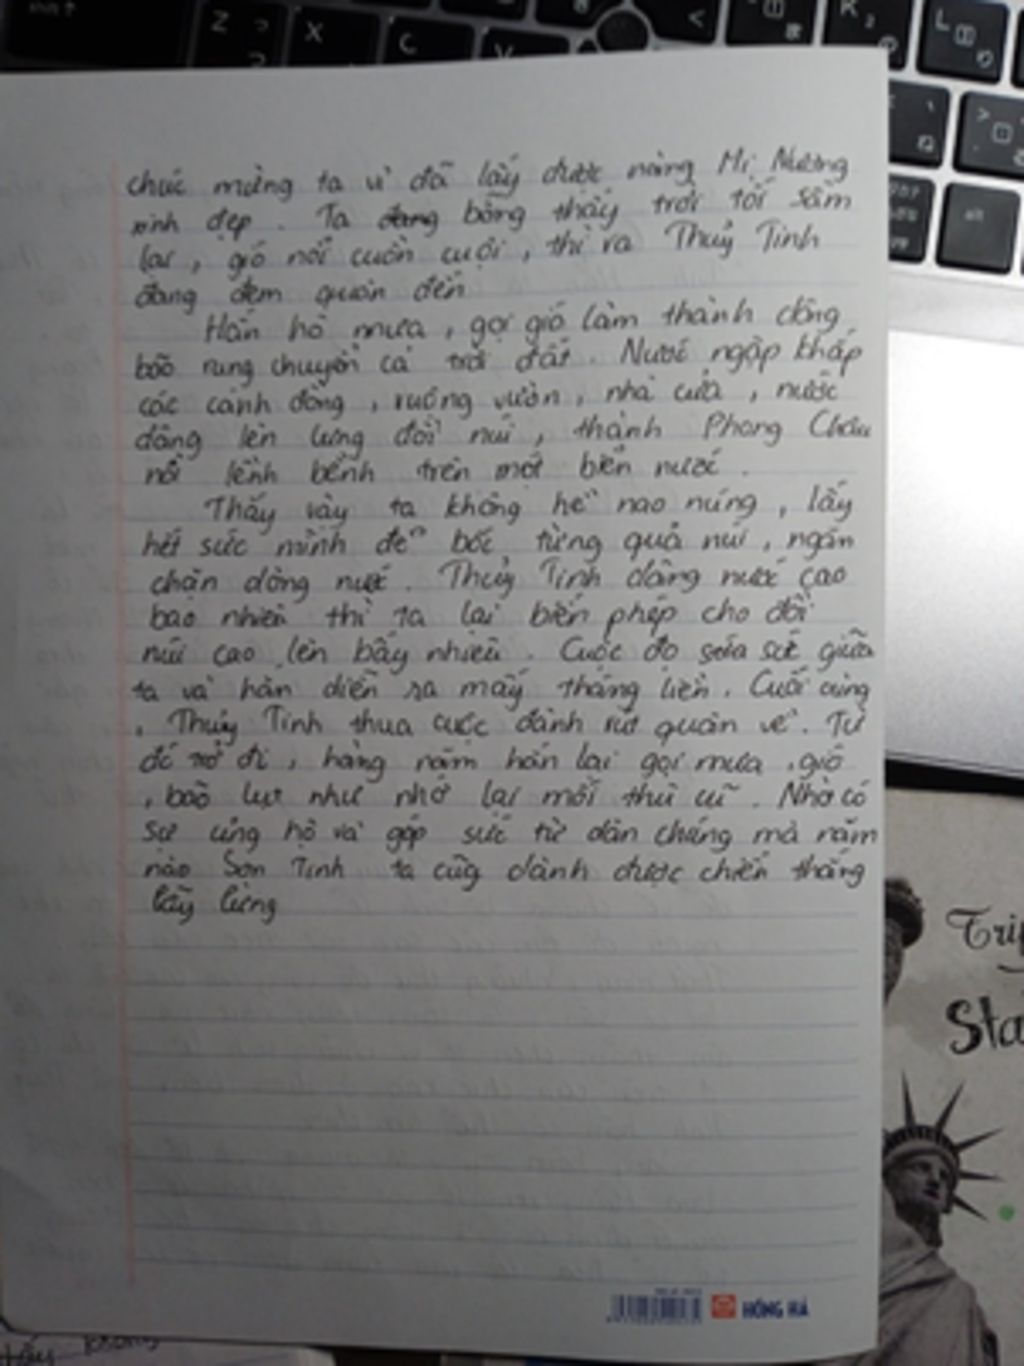 Z
X
C
V
<
K
L
alt
chúc mừng ta vì đã lấy được nàng Mị Nương
xinh đẹp . Ta đang bỗng thấy trời tối sầm
lại , gió nổi cuồn cuội , thì ra Thuỷ Tinh
đang đem quân đến
Hắn hô mưa , gọi gió làm thành dông
bão rung chuyển cả trời đất . Nước ngập khắp
các cánh đồng , ruộng vườn , nhà cửa , nước
dâng lên lưng đồi núi , thành Phong Châu
nổi lềnh bềnh trên một biển nước .
Thấy vậy ta không hề nao núng , lấy
hết sức mình để bốc từng quả núi , ngăn
chặn dòng nước . Thuỷ Tinh dâng nước cao
bao nhiêu thì ta lại biến phép cho đồi
núi cao lên bấy nhiêu . Cuộc đọ sức giữa
ta và hắn diễn ra mấy tháng liền . Cuối cùng
, Thuỷ Tinh thua cuộc đành rút quân về . Từ
đó trở đi , hàng năm hắn lại gọi mưa , gió
, bão lụt như nhớ lại mối thù cũ . Nhờ có
sự ủng hộ và góp sức từ dân chúng mà năm
nào Sơn Tinh ta cũg dành được chiến thắng
lẫy lừng
Sta
HỒNG HÀ
không